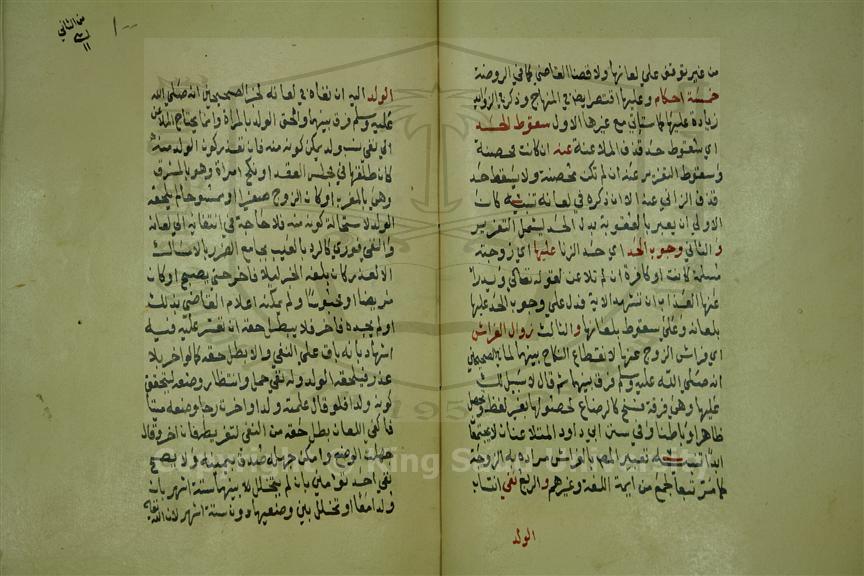 من غير توقف على لعانها ولا قضا القاضي كما في الروضة
خمسة احكام وعليها اقتصر ايضا في المنهاج وذكر في الزوايد
زيادة عليها كما سياتي مع غيرها الاول سقوط الحد
اي سقوط حد قذف الملاعنة عنه ان كانت محصنة
وسقوط التعزير عنه ان لم تكن محصنة ولا يسقط حد
قذف الزاني عنه الا ان ذكره في لعانه تنبيه كان
الاولى ان يعبر بالعقوبة بدل الحد ليشمل التعزير
والثاني وجوب الحد اي حد الزنا عليها اي زوجته
مسلمة كانت او كافرة ان لم تلاعن لقوله تعالى ويدرأ
عنها العذاب ان تشهد الاية فدل على وجوب الحد عليها
بلعانه وعلى سقوطه بلعانها والثالث زوال الفراش
اي فراش الزوج عنها لانقطاع النكاح بينهما لما في الصحيحين
انه صلى الله عليه وسلم فرق بينهما ثم قال لا سبيل لك
عليها وهي فرقة فسخ كالرضاع لحصولها بغير لفظ وتحصل
ظاهرا وباطنا وفي سنن ابي داود المتلاعنان لا يجتمعان
ابدا تنبيه تعبير المصنف بالفراش مراده به الزوجة
كما مر تبعا لجمع من ايمة اللغة وغيرهم والرابع نفي انتساب
الولد
الولد اليه ان نفاه في لعانه لخبر الصحيحين انه صلى الله
عليه وسلم فرق بينهما والحق الولد بالمراة وانما يحتاج الملاعن
الى نفي نسب ولد يمكن كونه منه فان تعذر كون الولد منه
كان طلقها في مجلس العقد او نكح امراة وهو بالمشرق
وهي بالمغرب او كان الزوج صغيرا او ممسوحا لم يلحقه
الولد لاستحالة كونه منه فلا حاجة في انتفايه الى لعانه
والنفي فوري كالرد بالعيب بجامع الضرر بالامساك
الا لعذر كان بلغه الخبر ليلا فاخر حتى يصبح او كان
مريضا او محبوسا ولم يمكنه اعلام القاضي بذلك
او لم يجده فاخر فلا يبطل حقه ان تعسر عليه فيه
اشهاد بانه باق على النفي والا بطل حقه كما لو اخر بلا
عذر فيلحقه الولد وله نفي حمل وانتظار وضعه ليتحقق
كونه ولدا فلو قال علمته ولدا واخرت رجا وضعه ميتا
فاكفى اللعان بطل حقه من النفي لتفريطه فان اخر وقال
جهلت الوضع وامكن جهله صدق بيمينه ولا يصح
نفي احد توامين بان لم يتخلل بينهما ستة اشهر بان
ولدا معا او تخلل بين وضعيهما دون ستة اشهر لان الله تعالى